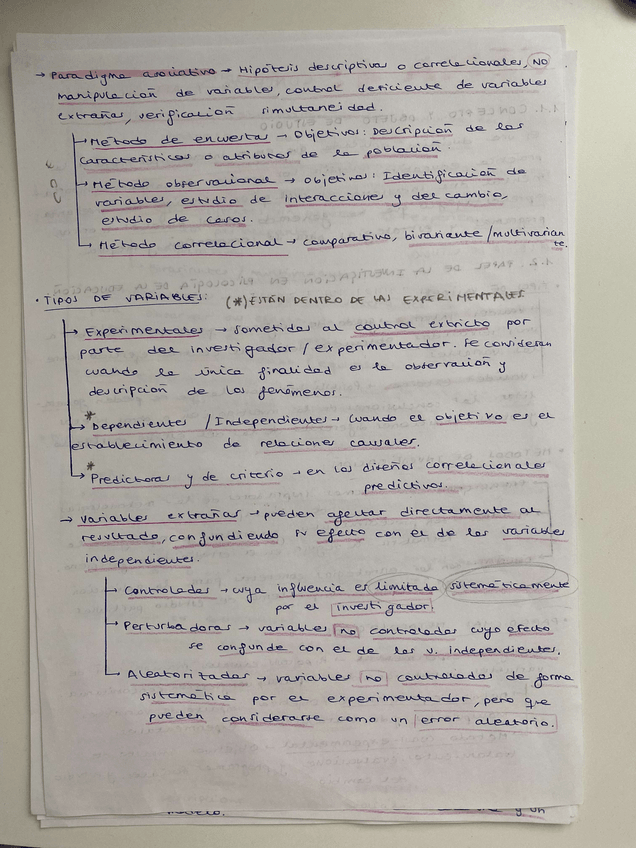 → Paradigma asociativo → Hipótesis descriptivas o correlacionales, NO
manipulación de variables, control deficiente de variables
extrañas, verificación simultaneidad.
→ Método de encuesta → Objetivos: Descripción de las
características o atributos de la población.
→ Método observacional → Objetivos: Identificación de
variables, estudio de interacciones y del cambio,
estudio de casos.
→ Método correlacional → comparativo, bivariante/multivarian
te.
· TIPOS DE VARIABLES: (*) ESTÁN DENTRO DE LAS EXPERIMENTALES
→ Experimentales → sometidas al control extricto por
parte del investigador/experimentador. Se consideran
cuando la única finalidad es la observación y
descripción de los fenómenos.
*
→ Dependientes / Independientes → cuando el objetivo es el
establecimiento de relaciones causales.
*
→ Predictoras y de criterio → en los diseños correlacionales
predictivos.
→ Variables extrañas → pueden afectar directamente al
resultado, confundiendo su efecto con el de las variables
independientes.
Controladas → cuya influencia es limitada sistemáticamente
por el investigador.
Perturbadoras → variables no controladas cuyo efecto
se confunde con el de las v. independientes.
Aleatorizadas → variables no controladas de forma
sistemática por el experimentador, pero que
pueden considerarse como un error aleatorio.
y un